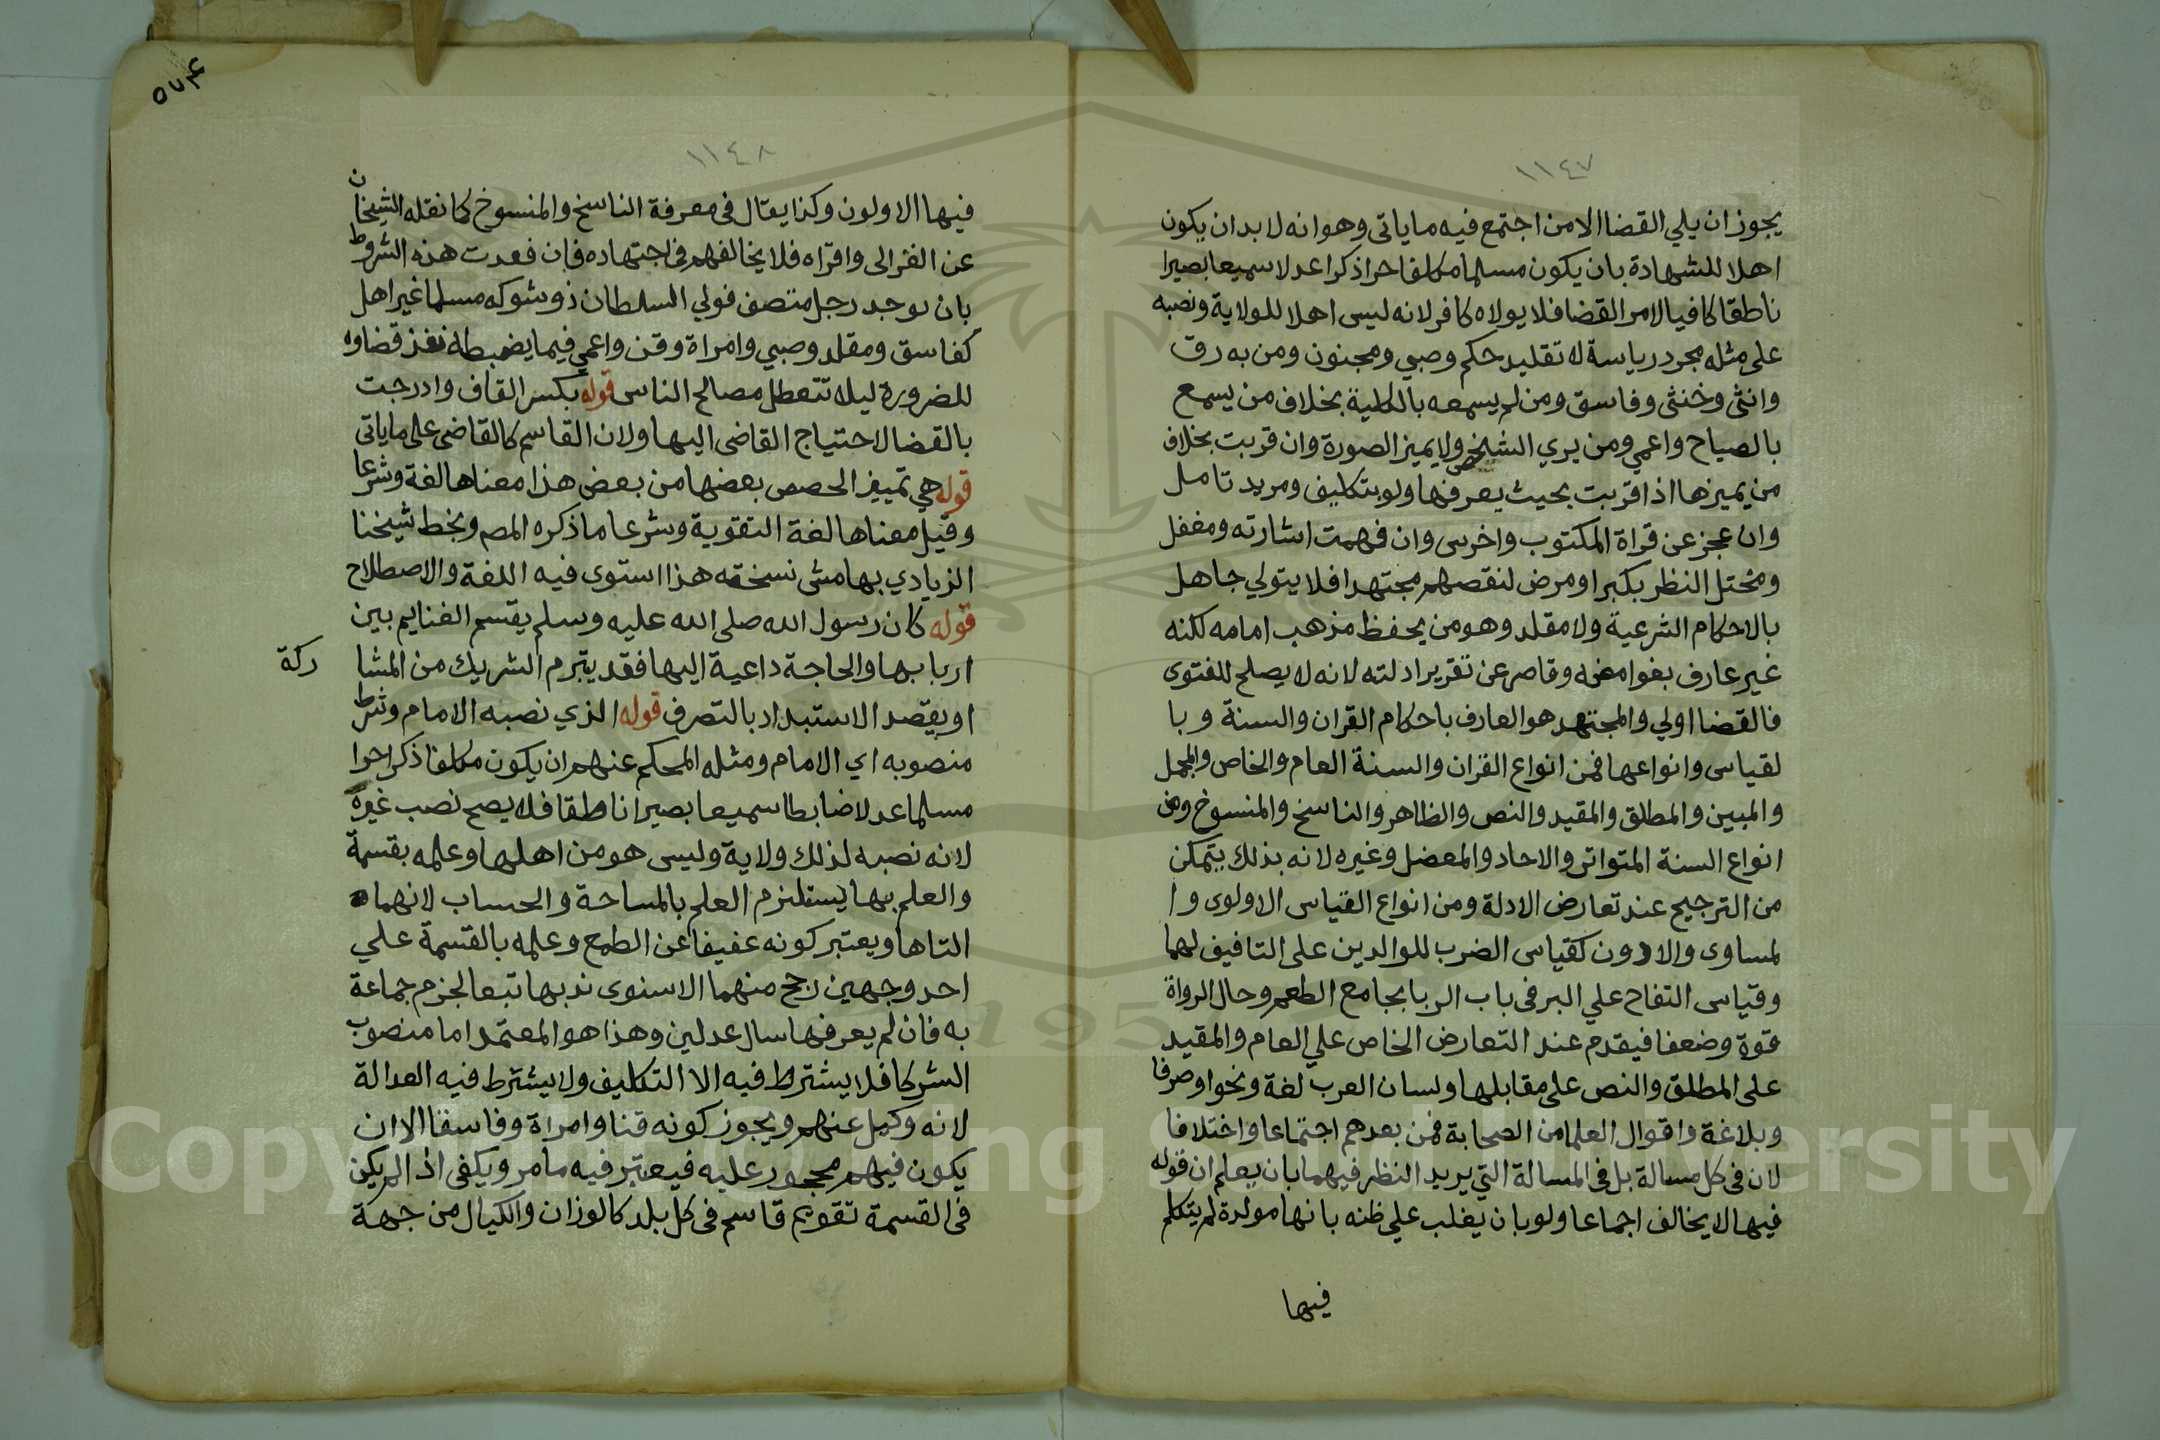 ١١٤٧
يجوز ان يلي القضا الا من اجتمع فيه ما ياتى وهو انه لا بد ان يكون
اهلا للشهادة بان يكون مسلما مكلفا حرا ذكرا عدلا سميعا بصيرا
ناطقا كافيا لامر القضا فلا يولاه كافر لانه ليس اهلا للولاية ونصبه
على مثله مجرد رياسة لا تقليد حكم وصبي ومجنون ومن به رق
وانثى وخنثى وفاسق ومن لم يسمعه بالكلية بخلاف من يسمع
بالصياح واعمي ومن يري الشخص ولا يميز الصورة وان قربت بخلاف
من يميزها اذا قربت بحيث يعرفها ولو بتكليف ومزيد تامل
وان عجز عن قراة المكتوب واخرس وان فهمت اشارته ومغفل
ومختل النظر بكبر او مرض لنقصهم مجتهدا فلا يتولي جاهل
بالاحكام الشرعية ولا مقلد وهو من يحفظ مذهب امامه لكنه
غير عارف بغوامضه وقاصر عن تقرير ادلته لانه لا يصلح للفتوى
فالقضا اولي والمجتهد هو العارف باحكام القران والسنة وبا
لقياس وانواعها فمن انواع القران والسنة العام والخاص والمجمل
والمبين والمطلق والمقيد والنص والظاهر والناسخ والمنسوخ ومن
انواع السنة المتواتر والاحاد والمعضل وغيره لانه بذلك يتمكن
من الترجيح عند تعارض الادلة ومن انواع القياس الاولوى وا
لمساوى والادون كقياس الضرب للوالدين على التافيف لهما
وقياس التفاح علي البر فى باب الربا بجامع الطعم وحال الرواة
قوة وضعفا فيقدم عند التعارض الخاص علي العام والمقيد
على المطلق والنص على مقابلها ولسان العرب لغة ونحوا وصرفا
وبلاغة واقوال العلما من الصحابة فمن بعدهم اجتماعا واختلافا
لان فى كل مسالة بل فى المسالة التي يريد النظر فيهما بان يعلم ان قوله
فيها لا يخالف اجماعا ولو بان يغلب علي ظنه بانها مولدة لم يتكلم
فيها
٥٧٤
١١٤٨
فيها الاولون وكذا يقال فى معرفة الناسخ والمنسوخ كما نقله الشيخان
عن الغزالى واقراه فلا يخالفهم فى اجتهاده فان فعدت هذه الشروط
بان يوجد رجل متصف فولي السلطان ذو شوكه مسلما غير اهل
كفاسق ومقلد وصبي وامراة وقن واعمي فيما يضبطه نفذ قضاوه
للضرورة ليلا تتعطل مصالح الناس قوله بكسر القاف وادرجت
بالقضا لاحتياج القاضى اليها ولان القاسم كالقاضى على ما ياتى
قوله هي تمييز الحصص بعضها من بعض هذا معناها لغة وشرعا
وقيل معناها لغة التقوية وشرعا ما ذكره المصم وبخط شيخنا
الزيادي بهامش نسخته هذا استوى فيه اللغة والاصطلاح
قوله كان رسول الله صلى الله عليه وسلم يقسم الغنايم بين
اربابها والحاجة داعية اليها فقد يتبرم الشريك من المشا
ركة
او يقصد الاستبداد بالتصرف قوله الذي نصبه الامام وشرط
منصوبه اي الامام ومثله المحكم عنهم ان يكون مكلفا ذكرا حرا
مسلما عدلا ضابطا سميعا بصيرا ناطقا فلا يصح نصب غيره
لانه نصبه لذلك ولاية وليس هو من اهلها وعلمه بقسمة
والعلم بها يستلزم العلم بالمساحة والحساب لانهما
التاها ويعتبر كونه عفيفا عن الطمع وعلمه بالقسمة علي
احد وجهين رجح منهما الاسنوى ندبها تبعا لجزم جماعة
به فان لم يعرفها سال عدلين وهذا هو المعتمد اما منصوب
الشركا فلا يشترط فيه الا التكليف ولا يشترط فيه العدالة
لانه وكيل عنهم ويجوز كونه قنا وامراة وفاسقا الا ان
يكون فيهم محجور عليه فيعتبر فيه ما مر ويكفى اذا لم يكن
فى القسمة تقويم قاسم فى كل بلد كالوزان والكيال من جهة